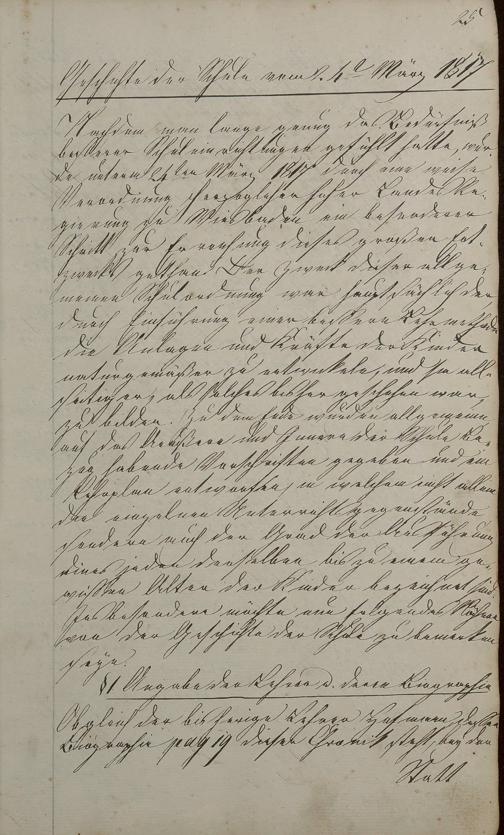 25
Geschichte der Schule vom 24n März 1817
Nachdem man lange genug das Bedürfniß
besserer Schuleinrichtungen gefühlt hatte, wur-
de unterm 24ten März 1817 durch eine weise
Verordnung herzoglicher hoher Landes Re-
gierung zu Wiesbaden ein besonderer
Schritt zur Erreichung dieses großen End-
zwecks gethan. Der Zweck dieser allge-
meinen Schulordnung war hauptsächlich der
durch Einführung einer bessern Lehrmethode
die Anlagen und Kräfte der Kinder
naturgemäßer zu entwickeln, und sie all-
seitiger, als solches bisher geschehen war,
zu bilden. Zu dem Ende wurden allgemeine
auf das Aeußere und Innere der Schule Be-
zug habende Vorschriften gegeben und ein
Lehrplan entworfen, in welchem nicht allein
die einzelnen Unterrichtsgegenstände
sondern auch der Grad der Ausführung
eines jeden derselben bis zu einem ge-
wissen Alter der Kinder bezeichnet sind.
Insbesondere möchte nun folgendes Nähere
von der Geschichte der Schule zu bemerken
seyn.
§1 Angabe der Lehrer u. deren Biographie
Obgleich der bisherige Lehrer Hofmann, dessen
Biographie pag 19 dieser Chronik steht, bey den
Statt